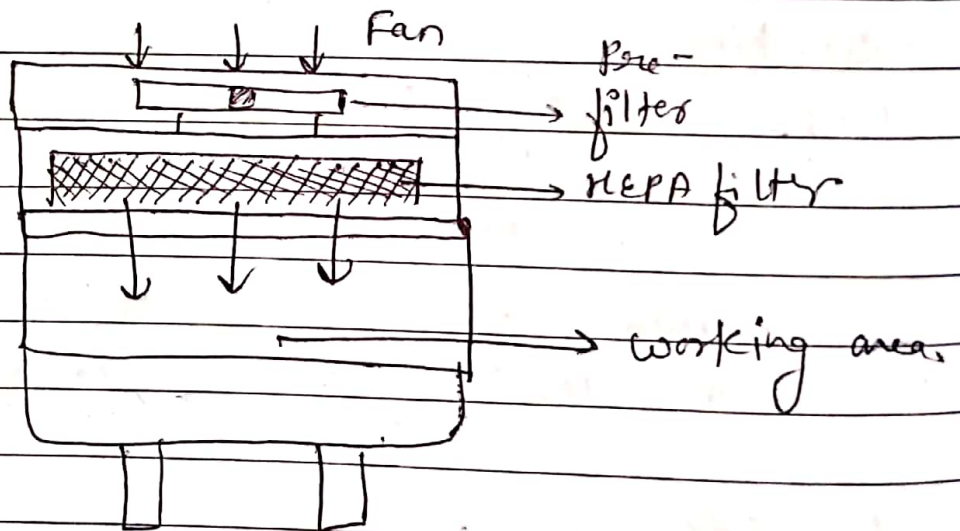 Fan
Pre-
filter
HEPA filter
working area.